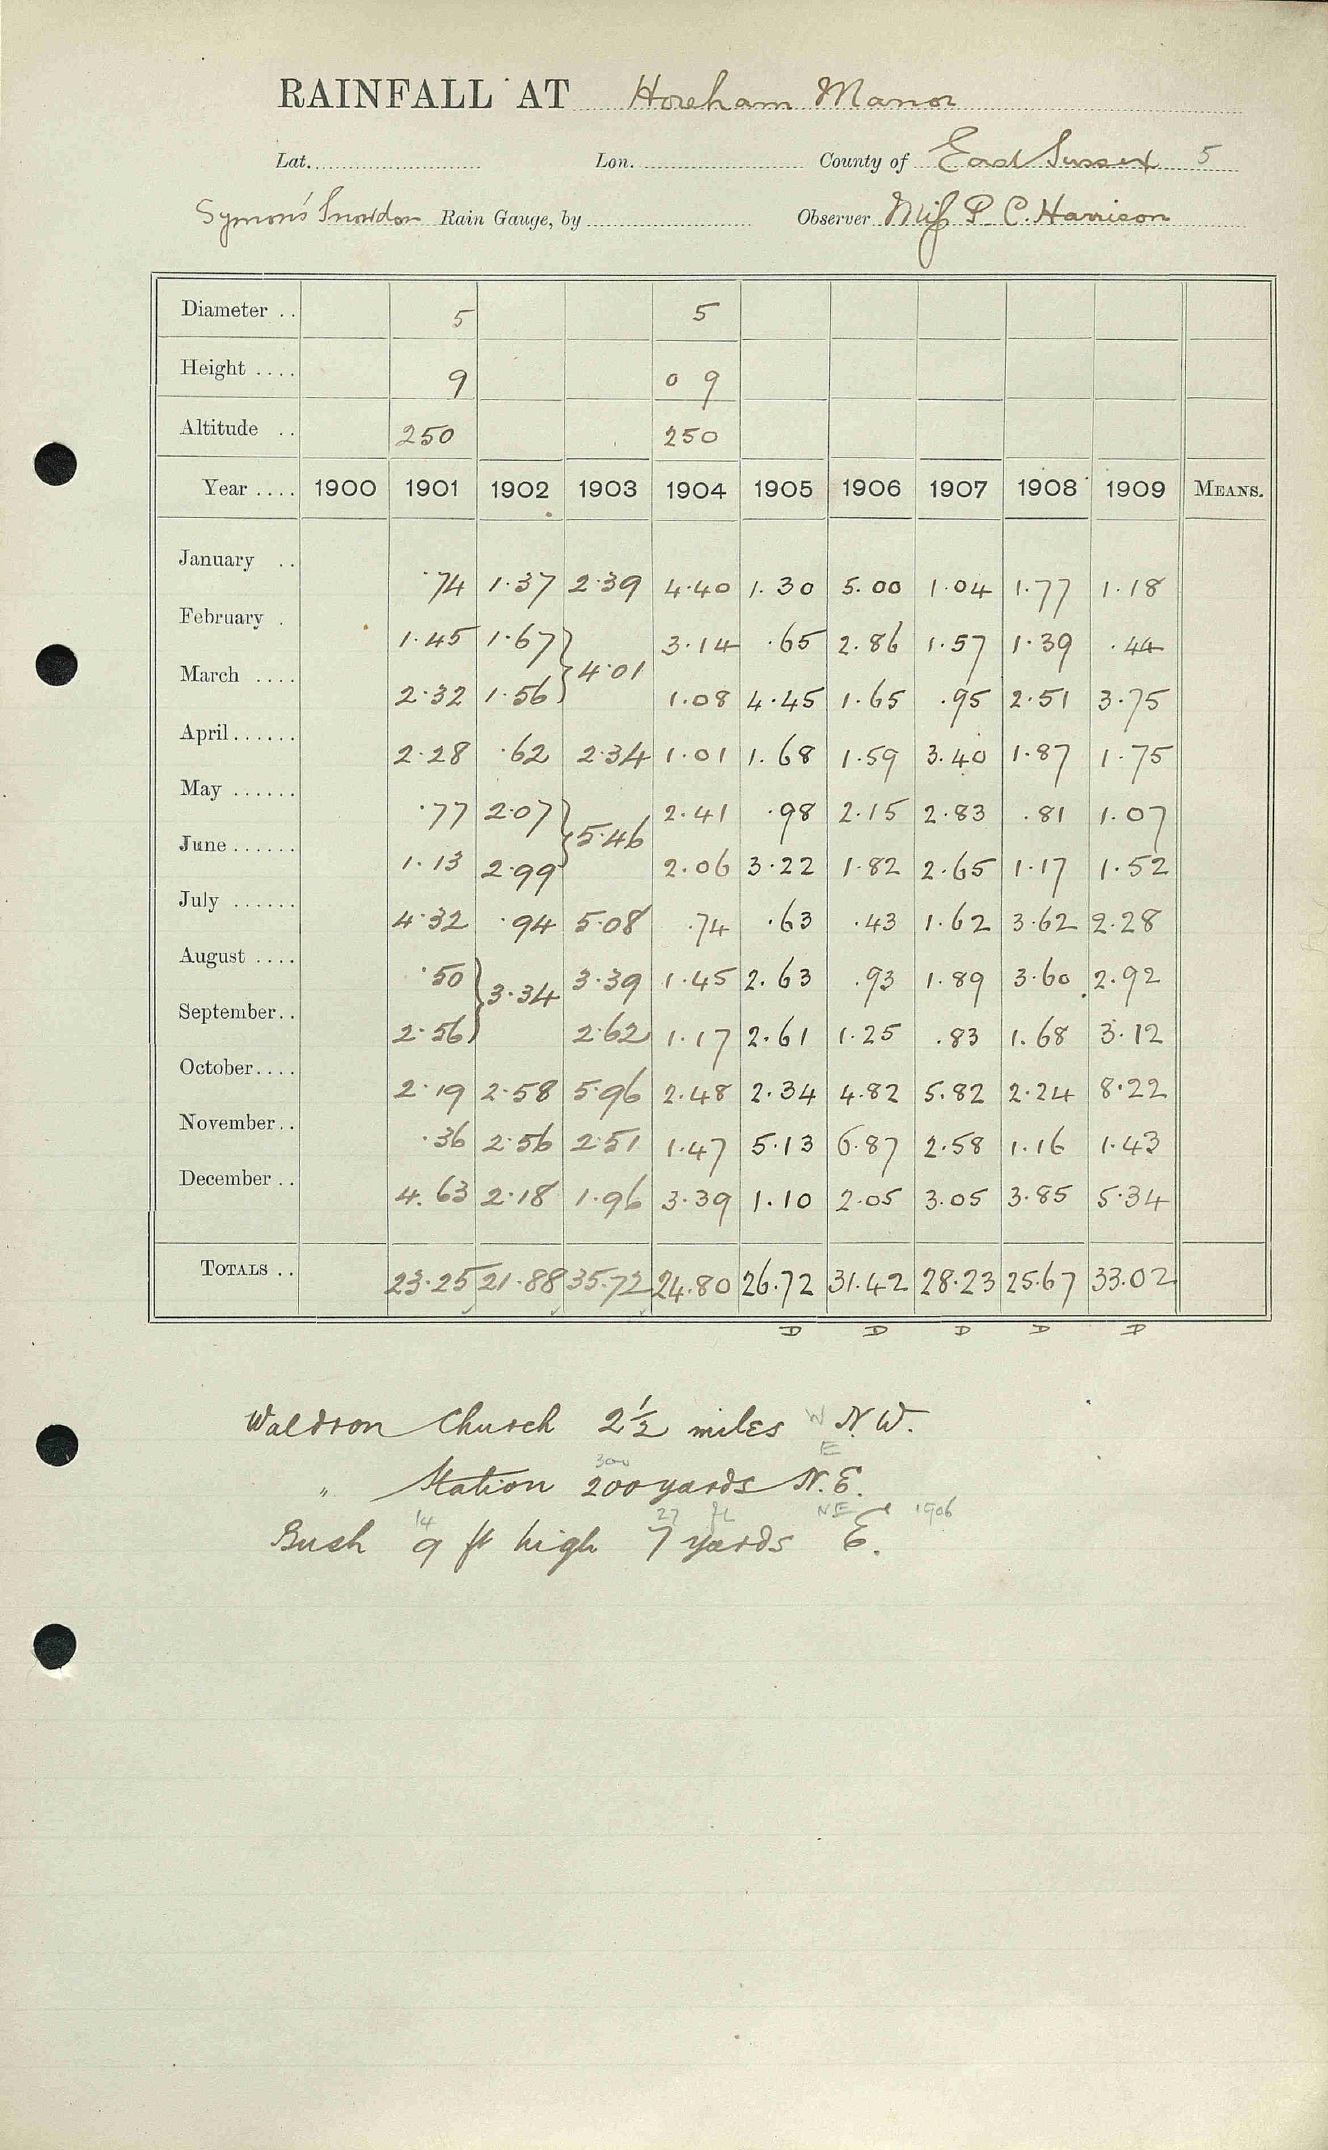 RAINFALL AT Horeham Manor
Lat. Lon. County of East Sussex 5
Symons's Snowdon Rain Gauge, by Observer Miss P. C. Harrison
Diameter .. 5 5
Height .... 9 0 9
Altitude .. 250 250
Year .... 1900 1901 1902 1903 1904 1905 1906 1907 1908 1909 MEANS.
January .. .74 1.37 2.39 4.40 1.30 5.00 1.04 1.77 1.18
February . 1.45 1.67 3.14 .65 2.86 1.57 1.39 .44
} 4.01
March .... 2.32 1.56 1.08 4.45 1.65 .95 2.51 3.75
April...... 2.28 .62 2.34 1.01 1.68 1.59 3.40 1.87 1.75
May ...... .77 2.07 2.41 .98 2.15 2.83 .81 1.07
} 5.46
June...... 1.13 2.99 2.06 3.22 1.82 2.65 1.17 1.52
July ...... 4.32 .94 5.08 .74 .63 .43 1.62 3.62 2.28
August .... .50 } 3.34 3.39 1.45 2.63 .93 1.89 3.60 2.92
September.. 2.56 2.62 1.17 2.61 1.25 .83 1.68 3.12
October.... 2.19 2.58 5.96 2.48 2.34 4.82 5.82 2.24 8.22
November.. .36 2.56 2.51 1.47 5.13 6.87 2.58 1.16 1.43
December .. 4.63 2.18 1.96 3.39 1.10 2.05 3.05 3.85 5.34
TOTALS .. 23.25 21.88 35.72 24.80 26.72 31.42 28.23 25.67 33.02
D D D D D
Waldron Church 2½ miles W N.W.
300 E
" Station 200 yards N.E.
14 27 ft NE 1906
Bush 9 ft high 7 yards E.